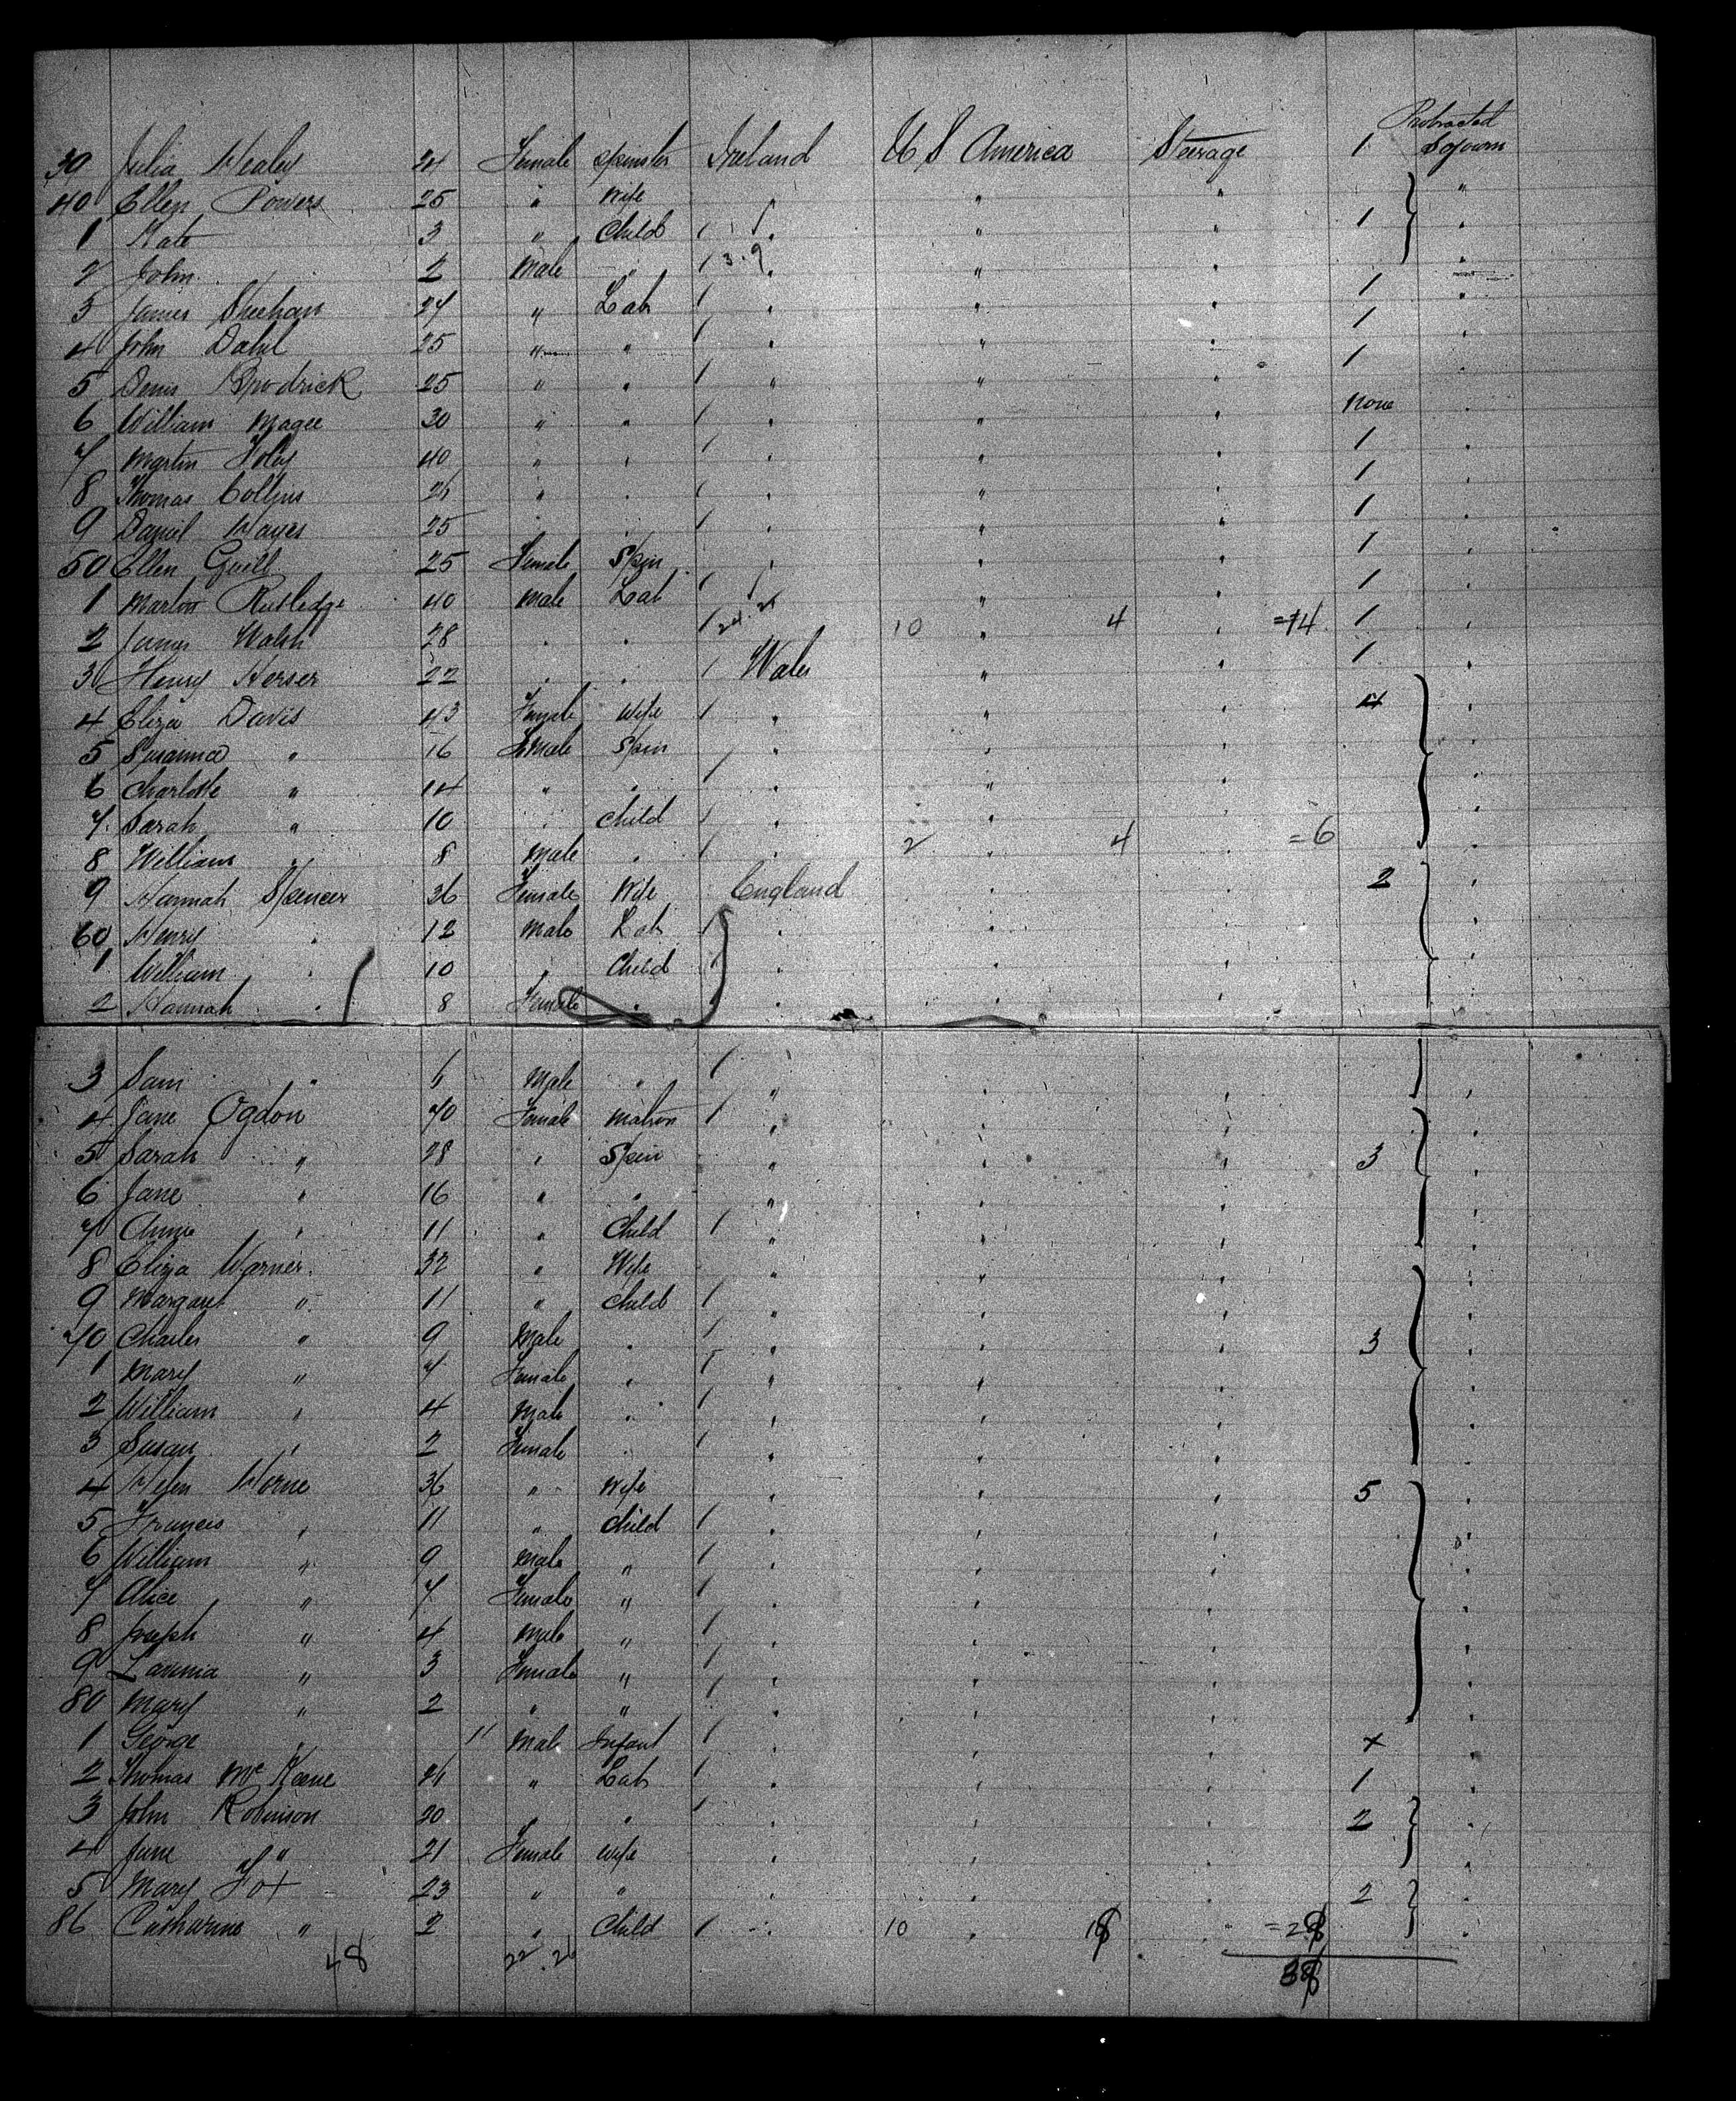 Protracted
39 Julia Healey 24 Female Spinster Ireland U S America Steerage 1 Sojourn
40 Ellen Powers 25 " Wife " " " "
1 Kate 3 " Child " " " 1 "
2 John 2 Male " 3.9 " " " "
3 James Sheehan 24 " Lab " " " 1 "
4 John Dahil 25 " " " " " 1 "
5 Denis Brodrick 25 " " " " " 1 "
6 William Magee 30 " " " " " none "
7 Martin Foley 40 " " " " " 1 "
8 Thomas Collins 26 " " " " " 1 "
9 Daniel Hayes 25 " " " " " 1 "
50 Ellen Guill 25 Female Spin " " " 1 "
1 Martin Rutledge 40 Male Lab " " " 1 "
2 James Walsh 28 " " 10 " 4 " =14 1 "
3 Henry Herser 22 " " Wales " " 1 "
4 Eliza Davis 43 Female Wife " " " 4 "
5 Susanna " 16 Female Spin " " " "
6 Charlotte " 14 " " " " " "
7 Sarah " 10 " Child " " " "
8 William " 8 Male " " 2 " 4 " =6 "
9 Hannah Spencer 36 Female Wife England " " 2 "
60 Henry " 12 Male Lab " " " "
1 William " 10 " Child " " " "
2 Hannah " 8 Female " " " " "
3 Sam " 6 Male " " " " "
4 Jane Ogdon 70 Female Matron " " " "
5 Sarah " 28 " Spin " " " 3 "
6 Jane " 16 " " " " " "
7 Annie " 11 " Child " " " "
8 Eliza Warner 32 " Wife " " " "
9 Margaret " 11 " Child " " " "
70 Charles " 9 Male " " " " 3 "
1 Mary " 7 Female " " " " "
2 William " 4 Male " " " " "
3 Susan " 2 Female " " " " "
4 Helen Horne 36 " Wife " " " 5 "
5 Francis " 11 " Child " " " "
6 William " 9 Male " " " " "
7 Alice " 7 Female " " " " "
8 Joseph " 4 Male " " " " "
9 Lavinia " 3 Female " " " " "
80 Mary " 2 " " " " " "
1 George " 11 Male Infant " " " x "
2 Thomas McKeene 26 " Lab " " " 1 "
3 John Robinson 20 " " " " " 2 "
4 Jane " 21 Female Wife " " " "
5 Mary Fox 23 " " " " " 2 "
86 Catharine " 2 " Child " 10 " " "
48 22.26